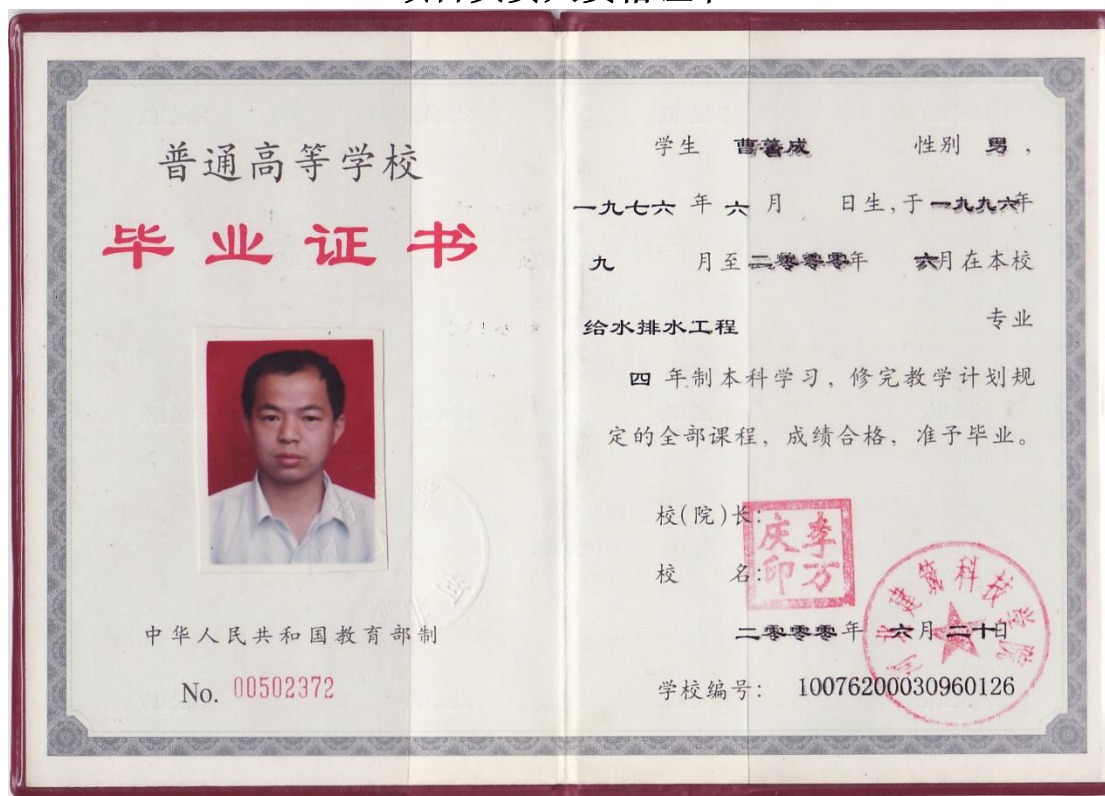 普通高等学校
毕业证书
中华人民共和国教育部制
No. 00502372
学生 曹善成 性别 男,
一九七六 年 六 月 日生,于一九九六年
九 月至二零零零年 六月在本校
给水排水工程 专业
四 年制本科学习, 修完教学计划规
定的全部课程, 成绩合格, 准予毕业。
校(院)长:
李万庆印
校 名:
河北建筑科技学院
二零零零年 六月二十日
学校编号: 10076200030960126